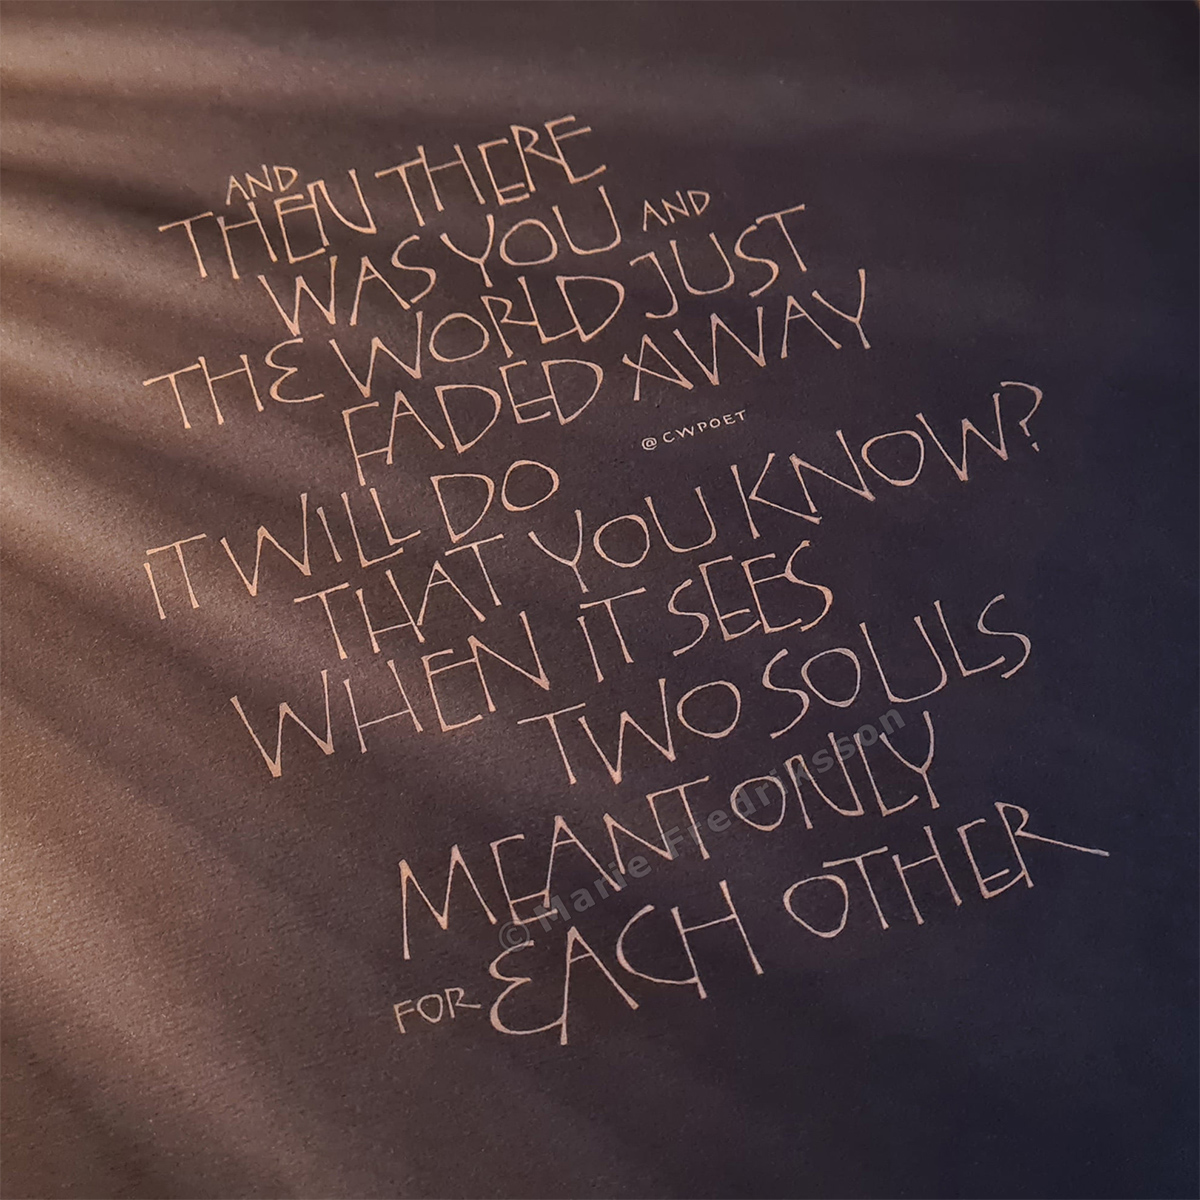 AND
THEN THERE
WAS YOU AND
THE WORLD JUST
FADED AWAY
@CWPOET
IT WILL DO
THAT YOU KNOW?
WHEN IT SEES
TWO SOULS
MEANT ONLY
FOR EACH OTHER
© Marie Fredriksson